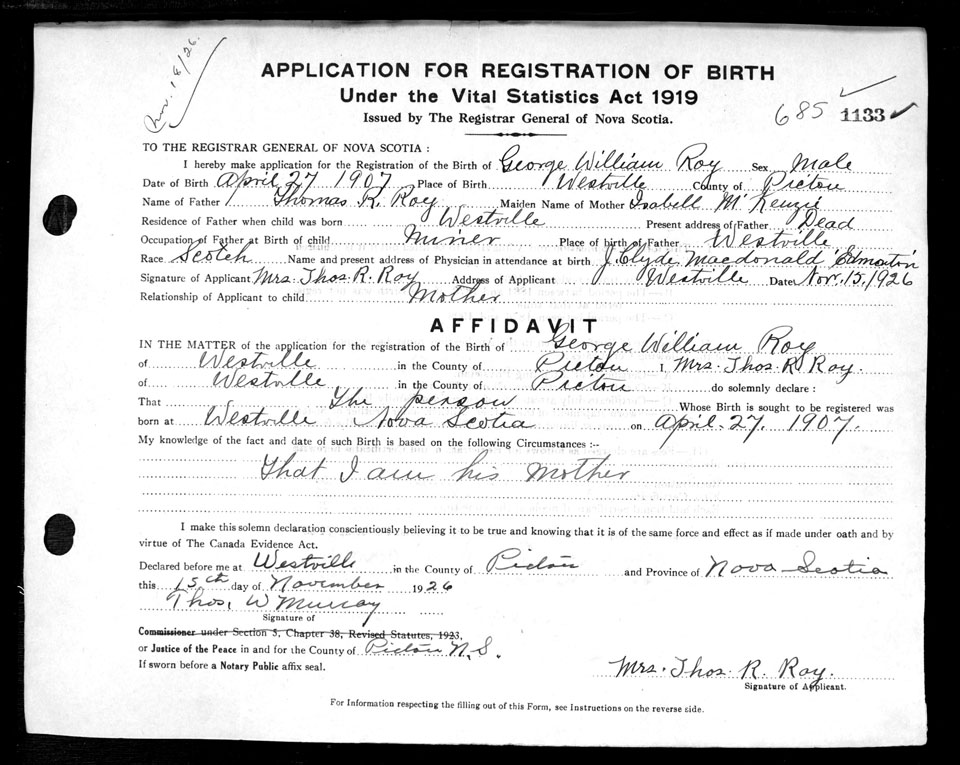 Nov. 18/26.
APPLICATION FOR REGISTRATION OF BIRTH
Under the Vital Statistics Act 1919
Issued by The Registrar General of Nova Scotia.
685 1133
TO THE REGISTRAR GENERAL OF NOVA SCOTIA :
I hereby make application for the Registration of the Birth of George William Roy Sex Male
Date of Birth April 27 1907 Place of Birth Westville County of Pictou
Name of Father Thomas R. Roy Maiden Name of Mother Isabell McKenzie
Residence of Father when child was born Westville Present address of Father Dead
Occupation of Father at Birth of child Miner Place of birth of Father Westville
Race Scotch Name and present address of Physician in attendance at birth J. Clyde Macdonald Edmonton
Signature of Applicant Mrs. Thos. R. Roy Address of Applicant Westville Date Nov. 15, 1926
Relationship of Applicant to child Mother
AFFIDAVIT
IN THE MATTER of the application for the registration of the Birth of George William Roy
of Westville in the County of Pictou I, Mrs. Thos. R. Roy.
of Westville in the County of Pictou do solemnly declare :
That The person Whose Birth is sought to be registered was
born at Westville Nova Scotia on April. 27. 1907.
My knowledge of the fact and date of such Birth is based on the following Circumstances :--
That I am his Mother
I make this solemn declaration conscientiously believing it to be true and knowing that it is of the same force and effect as if made under oath and by
virtue of The Canada Evidence Act.
Declared before me at Westville in the County of Pictou and Province of Nova Scotia
this 15th day of November 1926
Thos. W Murray
Signature of
Commissioner under Section 5, Chapter 38, Revised Statutes, 1923,
or Justice of the Peace in and for the County of Pictou N.S.
If sworn before a Notary Public affix seal.
Mrs. Thos. R. Roy.
Signature of Applicant.
For Information respecting the filling out of this Form, see Instructions on the reverse side.